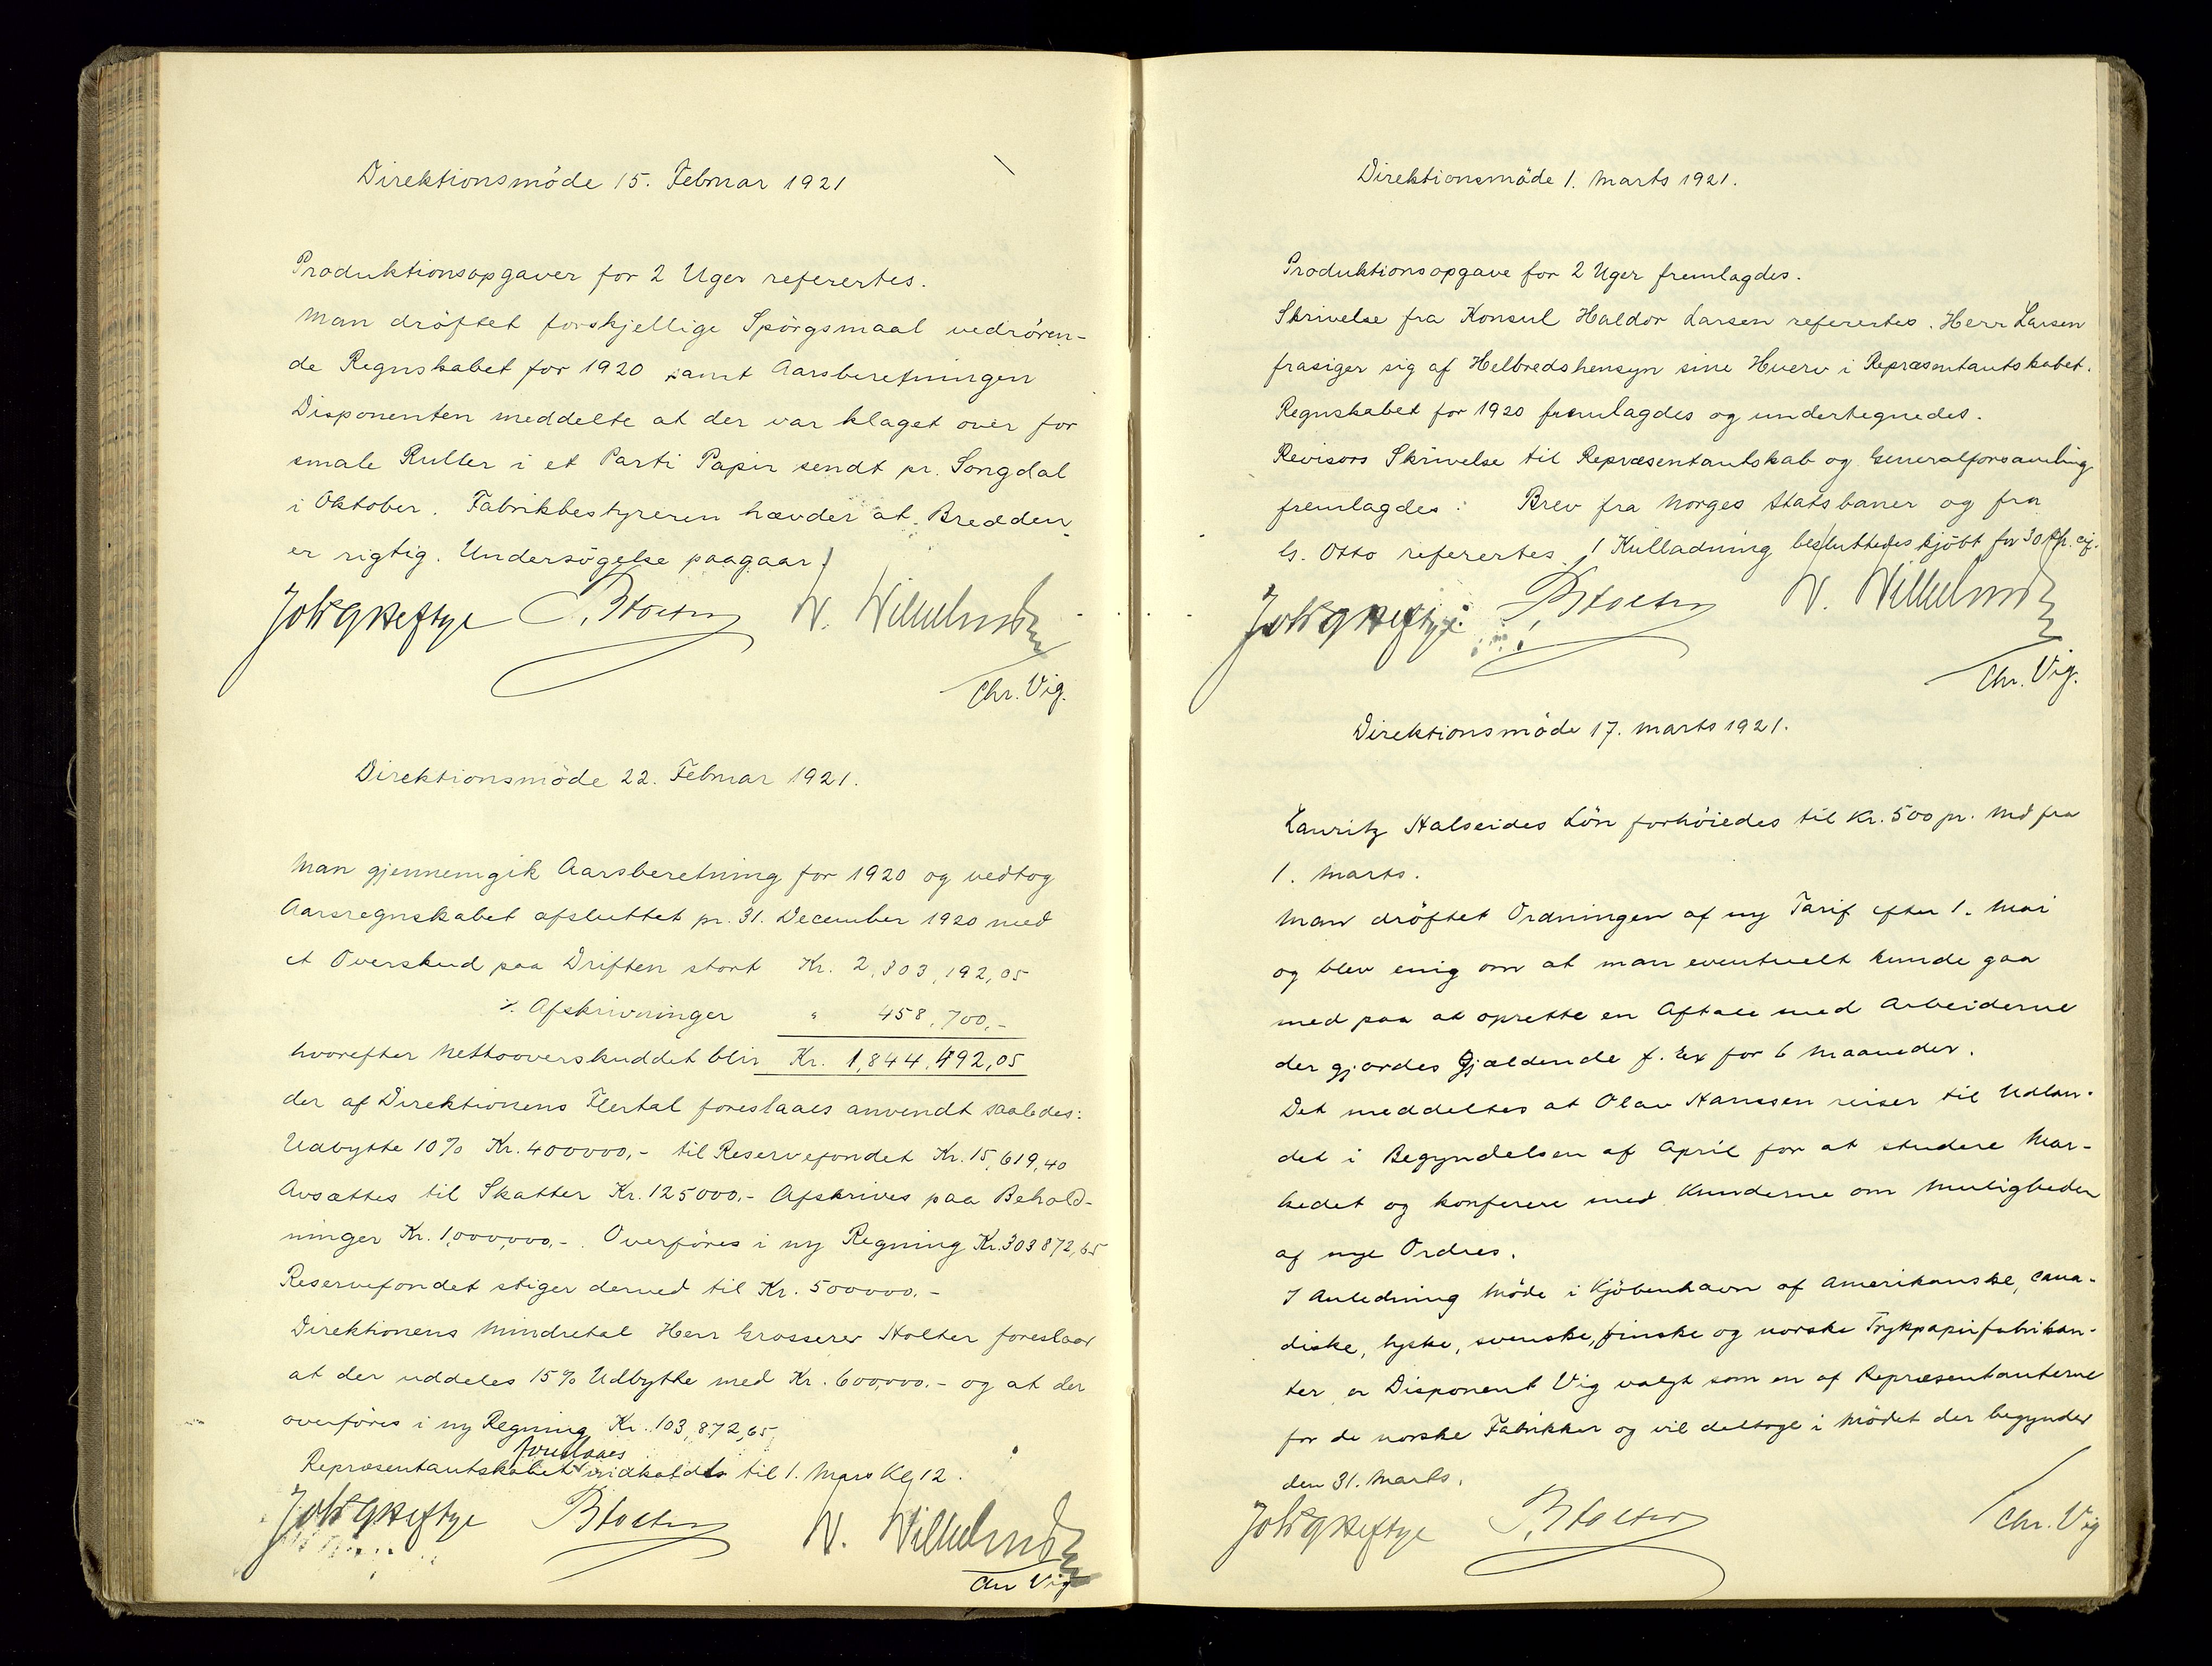 Direktionsmöde 15. Februar 1921
Produktionsopgaver for 2 Uger referertes.
Man dröftet forskjellige Spörgsmaal vedrören-
de Regnskabet for 1920 samt Aarsberetningen
Disponenten meddelte at der var klaget over for
smale Ruller i et Parti Papir sendt pr. Songdal
i Oktober. Fabrikbestyreren hævder at Bredden
er rigtig. Undersögelse paagaar.
Joh G Heftye P. Holter W. Wilhelmsen
Chr. Vig.
Direktionsmöde 22. Februar 1921.
Man gjennemgik Aarsberetning for 1920 og vedtog
Aarsregnskabet afsluttet pr. 31. December 1920 med
et Overskud paa Driften stort Kr. 2,303,192,05
% Afskrivninger " 458,700,-
hvorefter Nettooverskuddet blir Kr. 1,844,492,05
der af Direktionens Flertal foreslaaes anvendt saaledes:
Udbytte 10% Kr. 400000,- til Reservefondet Kr. 15,619,40
Avsættes til Skatter Kr. 125000,- Afskrives paa Behold-
ninger Kr. 1,000,000,-. Overföres i ny Regning Kr. 303872,65
Reservefondet stiger derved til Kr. 500000.-
Direktionens Mindretal Herr Grosserer Holter foreslaar
at der uddeles 15% Udbytte med Kr. 600,000.- og at der
overföres i ny Regning Kr. 103,872,65.
foreslaaes
Repræsentantskabet indkaldt til 1. Mars Kl. 12.
Joh G Heftye P. Holter W. Wilhelmsen
Chr Vig
Direktionsmöde 1. Marts 1921.
Produktionsopgave for 2 Uger fremlagdes.
Skrivelse fra Konsul Haldor Larsen referertes. Herr Larsen
frasiger sig af Helbredshensyn sine Hverv i Repræsentantskabet.
Regnskabet for 1920 fremlagdes og undertegnedes.
Revisors Skrivelse til Repræsentantskab og Generalforsamling
fremlagdes: Brev fra Norges Statsbaner og fra
G. Otto referertes. 1 Kulladning besluttedes kjöbt for 30 sh. cif.
Joh G Heftye P. Holter W. Wilhelmsen
Chr. Vig.
Direktionsmöde 17. Marts 1921.
Lauritz Halseides Lön forhöiedes til Kr. 500 pr. Md fra
1. Marts.
Man dröftet Ordningen af ny Tarif efter 1. Mai
og blev enig om at man eventuelt kunde gaa
med paa at oprette en Aftale med Arbeiderne
der gjordes Gjældende f. Ex for 6 Maaneder.
Det meddeltes at Olav Hanssen reiser til Udlan-
det i Begyndelsen af April for at studere Mar-
kedet og konferere med Kunderne om Muligheden
af nye Ordres.
I Anledning Möde i Kjöbenhavn af Amerikanske, Cana-
diske, tyske, svenske, finske og norske Trykpapirfabrikan-
ter er Disponent Vig valgt som en af Repræsentanterne
for de norske Fabrikker og vil deltage i Mödet der begynder
den 31. Marts.
Joh G Heftye P. Holter Chr. Vig